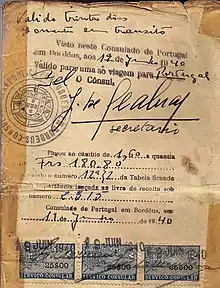 Valido trinta dias
somente em transito
Visto neste Consulado de Portugal
em Bordéus, aos 12 de Junho 1940
Valido para uma só viagem para Portugal
O Consul,
secretario
Pagou ao cambio de 1$60 a quantia
Frs 120.80
numero, da Tabela ficando
a importancia lançada no livro de receita sob
numero
Consulado de Portugal em Bordéus,
aos 11 de Junho de 1940
JUN. JUN. 1940
25$00 25$00 25$00
SERVIÇO CONSULAR SERVIÇO CONSULAR SERVIÇO CONSULAR